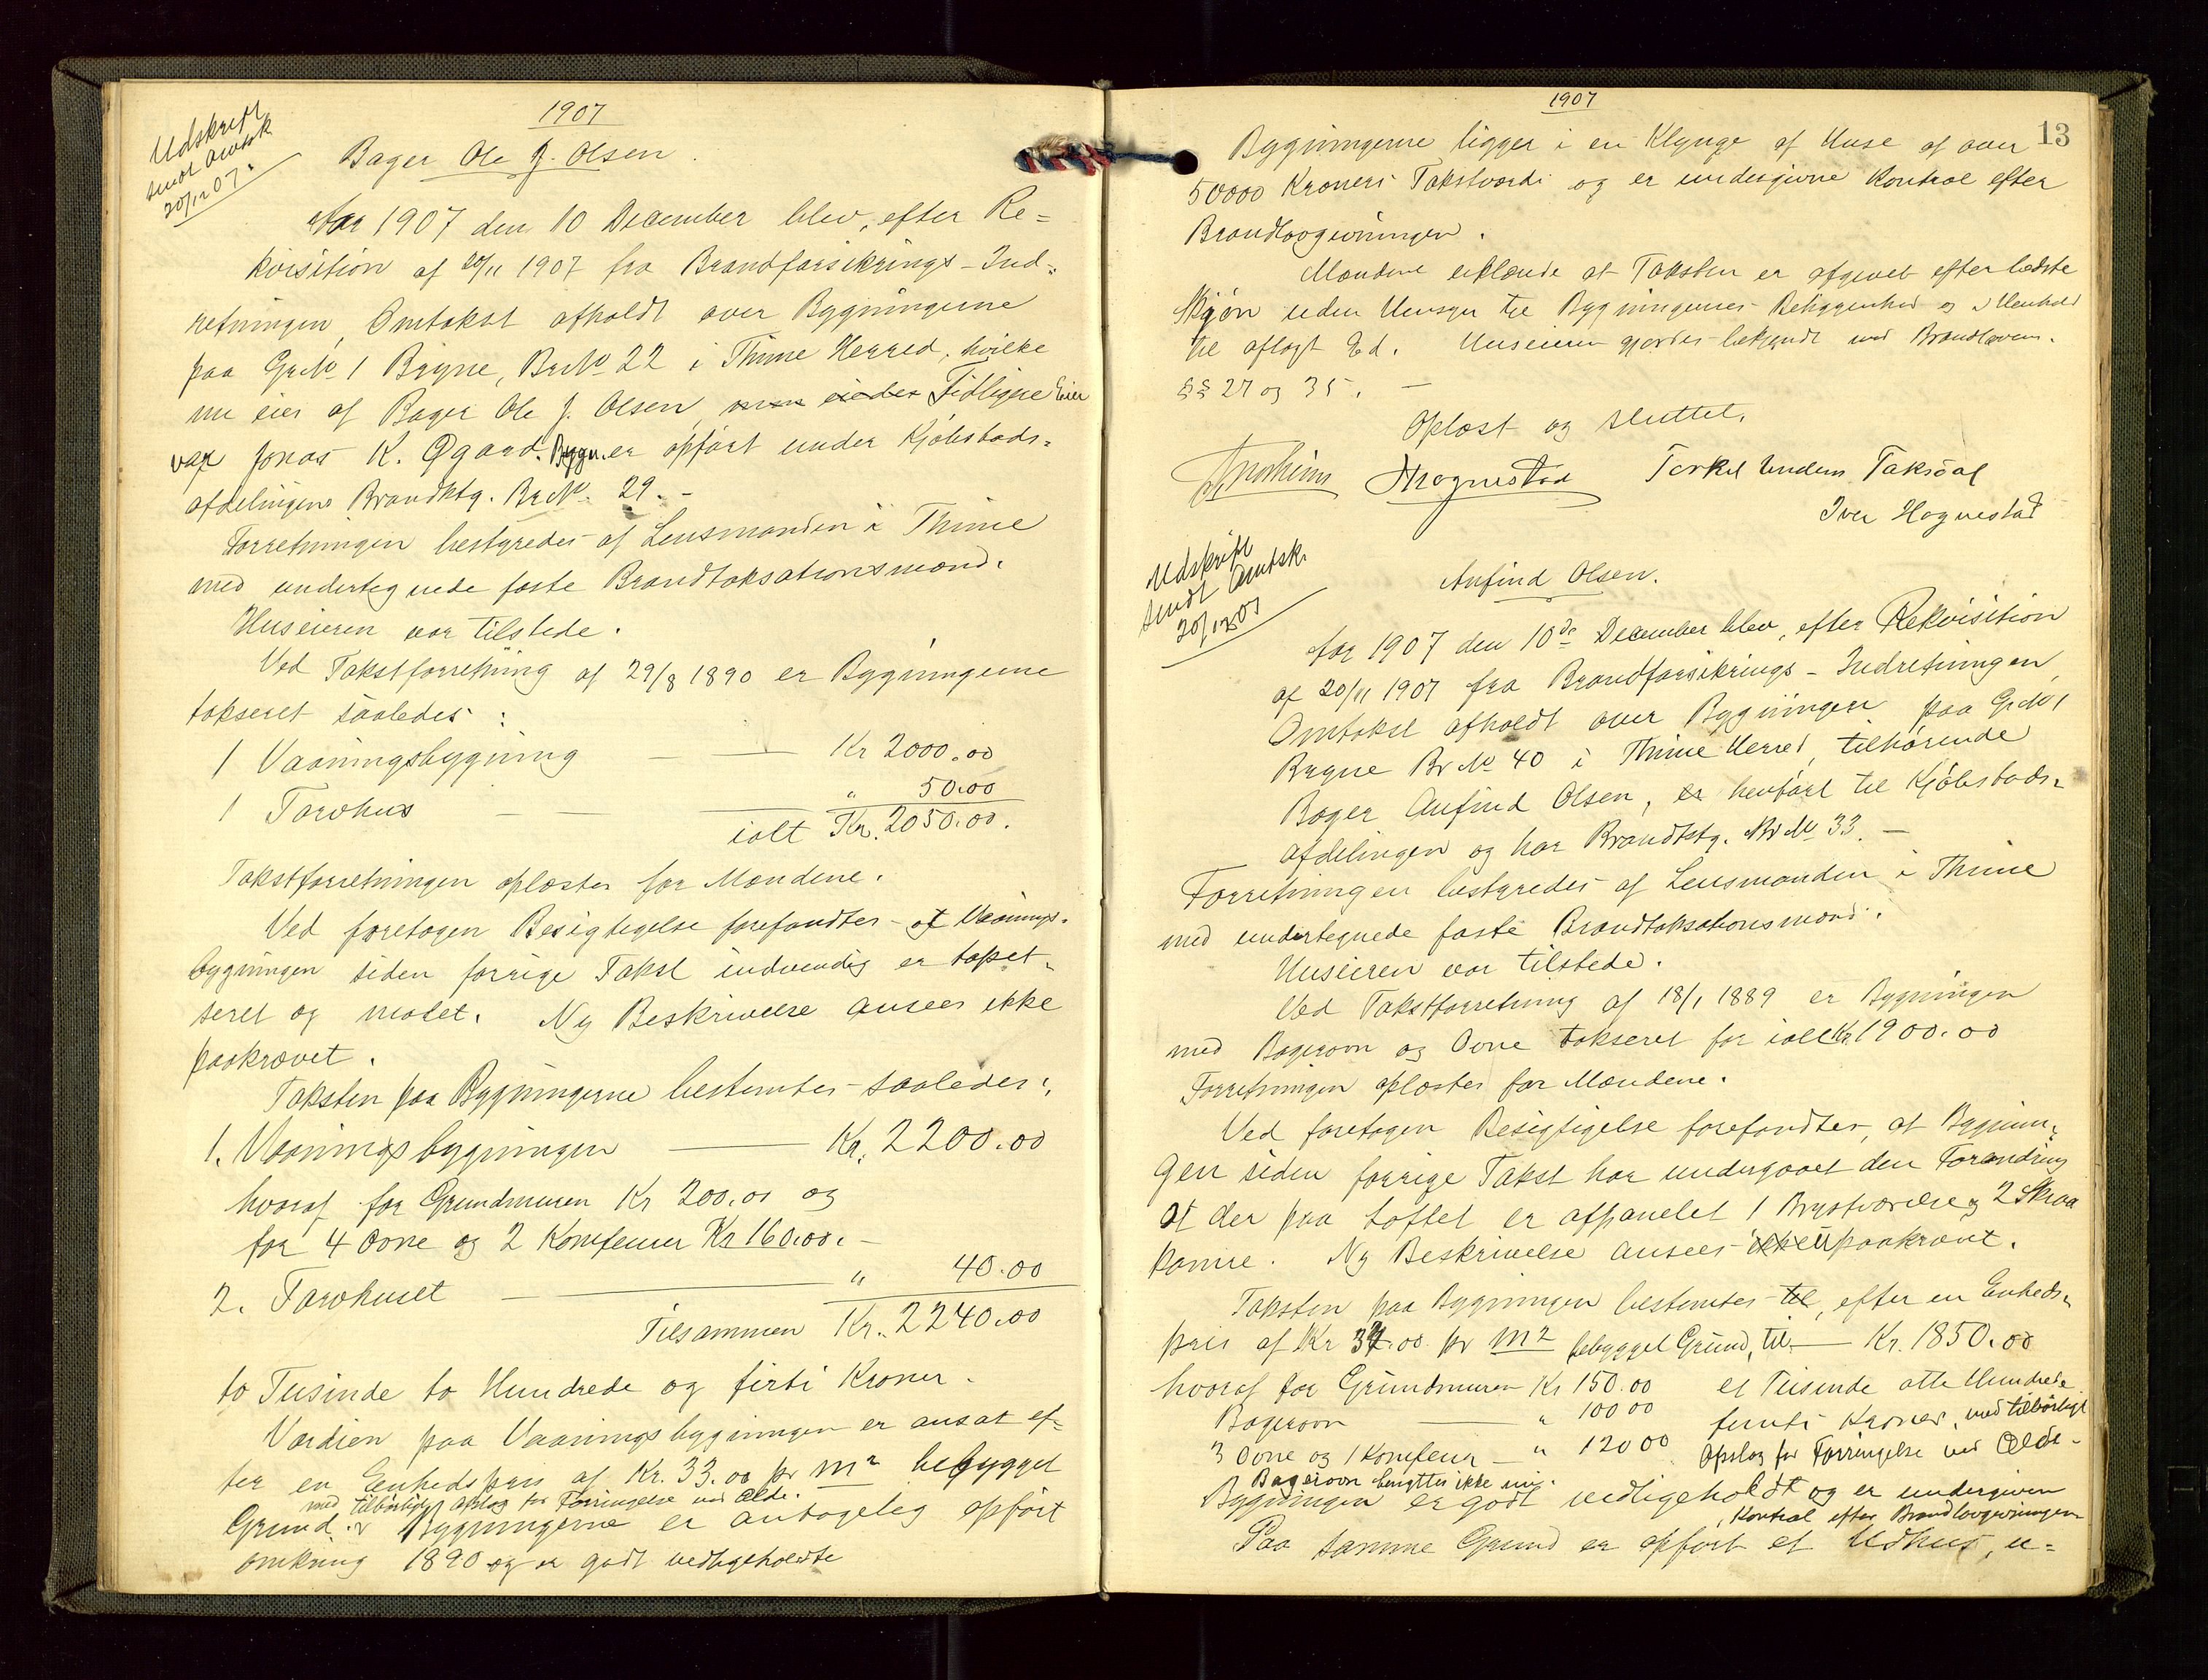 1907
Udskrift
sendt Amtsk
20/12 07.
Bager Ole J. Olsen.
Aar 1907 den 10 December blev, efter Re=
kvisition af 20/11 1907 fra Brandforsikrings-Ind=
retningen, Omtakst afholdt over Bygningerne
paa GrNo 1 Bryne, BrNo 22 i Thime Herred, hvilke
nu eies af Bager Ole J. Olsen, Tidligere Eier
var Jonas K. Øgard. Bygn. er opført under Kjøbstads=
afdelingens Brandktg. BrNo. 29.-
Forretningen bestyredes af Lensmanden i Thime
med undertegnede faste Brandtaksationsmænd.
Huseieren var tilstede.
Ved Takstforretning af 29/8 1890 er Bygningerne
takseret saaledes:
1 Vaaningsbygning — — Kr 2000.00
1 Torvhus — — " 50.00
ialt Kr. 2050.00.
Takstforretningen oplæstes for Mændene.
Ved foretagen Besigtigelse forefandtes at Vaanings=
bygningen siden forrige Takst indvendig er tapet=
seret og malet. Ny Beskrivelse ansees ikke
paakrævet.
Taksten paa Bygningerne bestemtes saaledes:
1. Vaaningsbygningen — Kr. 2200.00
hvoraf for Grundmuren Kr 200.00 og
for 4 Ovne og 2 Komfurer Kr 160.00.-
2. Torvhuset — " 40.00
Tilsammen Kr. 2240.00
to Tusinde to Hundrede og firti Kroner.
Værdien paa Vaaningsbygningen er ansat ef=
ter en Enhedspris af Kr. 33.00 pr m2 bebygget
med tilbørligt Afslag for Forringelse ved Ælde.
Grund. Bygningerne er antagelig opført
omkring 1890 og er godt vedligeholdte
1907
13
Bygningerne ligger i en Klynge af Huse af over
50000 Kroners Takstværdi og er undergivne Kontrol efter
Brandlovgivningen.
Mændene erklærede at Taksten er afgivet efter bedste
Skjøn uden Hensyn til Bygningernes Beliggenhed og i Henhold
til aflagt Ed. Huseieren gjordes bekjendt med Brandlovens
§§ 27 og 35. —
Oplæst og sluttet.
Hognestad Torkel Undem Taksdal
Iver Hognestad
Udskrift
sendt Amtsk.
20/12 07
Anfind Olsen.
Aar 1907 den 10de December blev, efter Rekvisition
af 20/11 1907 fra Brandforsikrings-Indretningen,
Omtakst afholdt over Bygningen paa GrNo 1
Bryne BrNo 40 i Thime Herred, tilhørende
Bager Anfind Olsen, er henført til Kjøbstads=
afdelingen og har Brandktg. BrNo 33. —
Forretningen bestyredes af Lensmanden i Thime
med undertegnede faste Brandtaksationsmænd.
Huseieren var tilstede.
Ved Takstforretning af 18/1 1889 er Bygningen
med Bagerovn og Ovne takseret for ialt Kr. 1900.00
Forretningen oplæstes for Mændene.
Ved foretagen Besigtigelse forefandtes, at Bygnin=
gen siden forrige Takst har undergaaet den Forandring
at der paa Loftet er afpanelet 1 Brystværelse og 2 Skraa
kamre. Ny Beskrivelse ansees ei paakrævt.
Taksten paa Bygningen bestemtes, efter en Enheds=
pris af Kr 34.00 pr m2 bebygget Grund, til — Kr. 1850.00
hvoraf for Grundmuren Kr 150.00 et Tusinde otte Hundrede
Bagerovn — " 100 00 femti Kroner, med tilbørligt
3 Ovne og 1 Komfeur — " 120 00 Afslag for Forringelse ved Ælde.
Bagerovn benyttes ikke nu.
Bygningen er godt vedligeholdt og er undergiven
Kontrol efter Brandlovgivningen
Paa samme Grund er opført et Udhus, u=